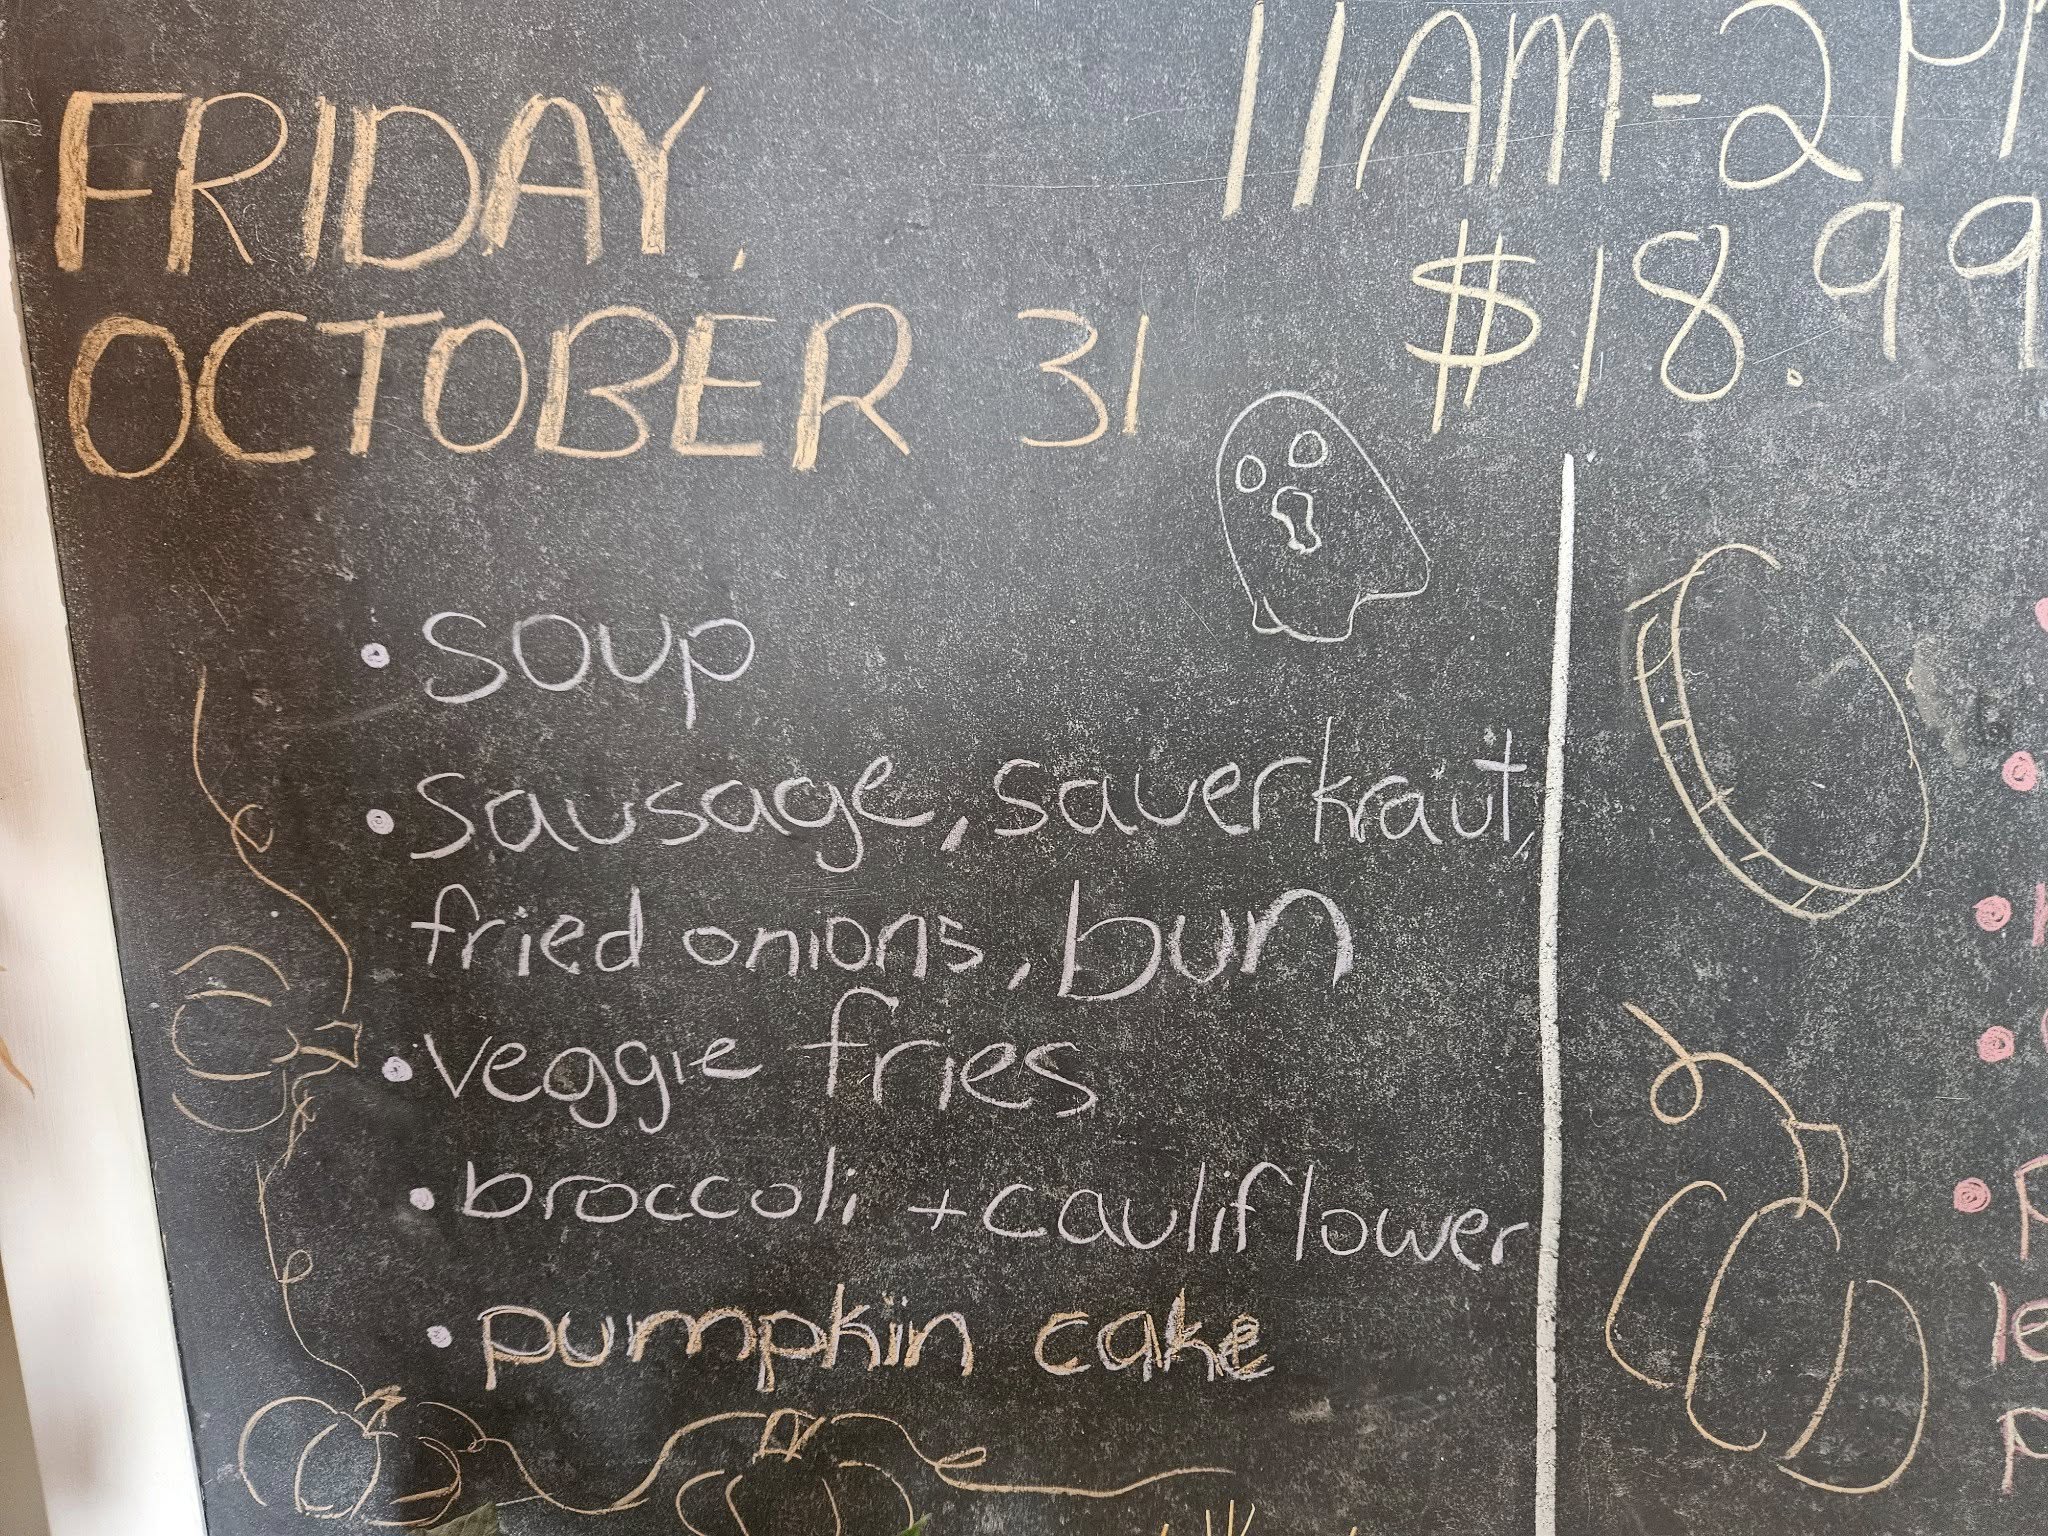 FRIDAY,
OCTOBER 31
11AM-2PM
$18.99
• soup
• sausage, sauerkraut,
fried onions, bun
• veggie fries
• broccoli + cauliflower
• pumpkin cake